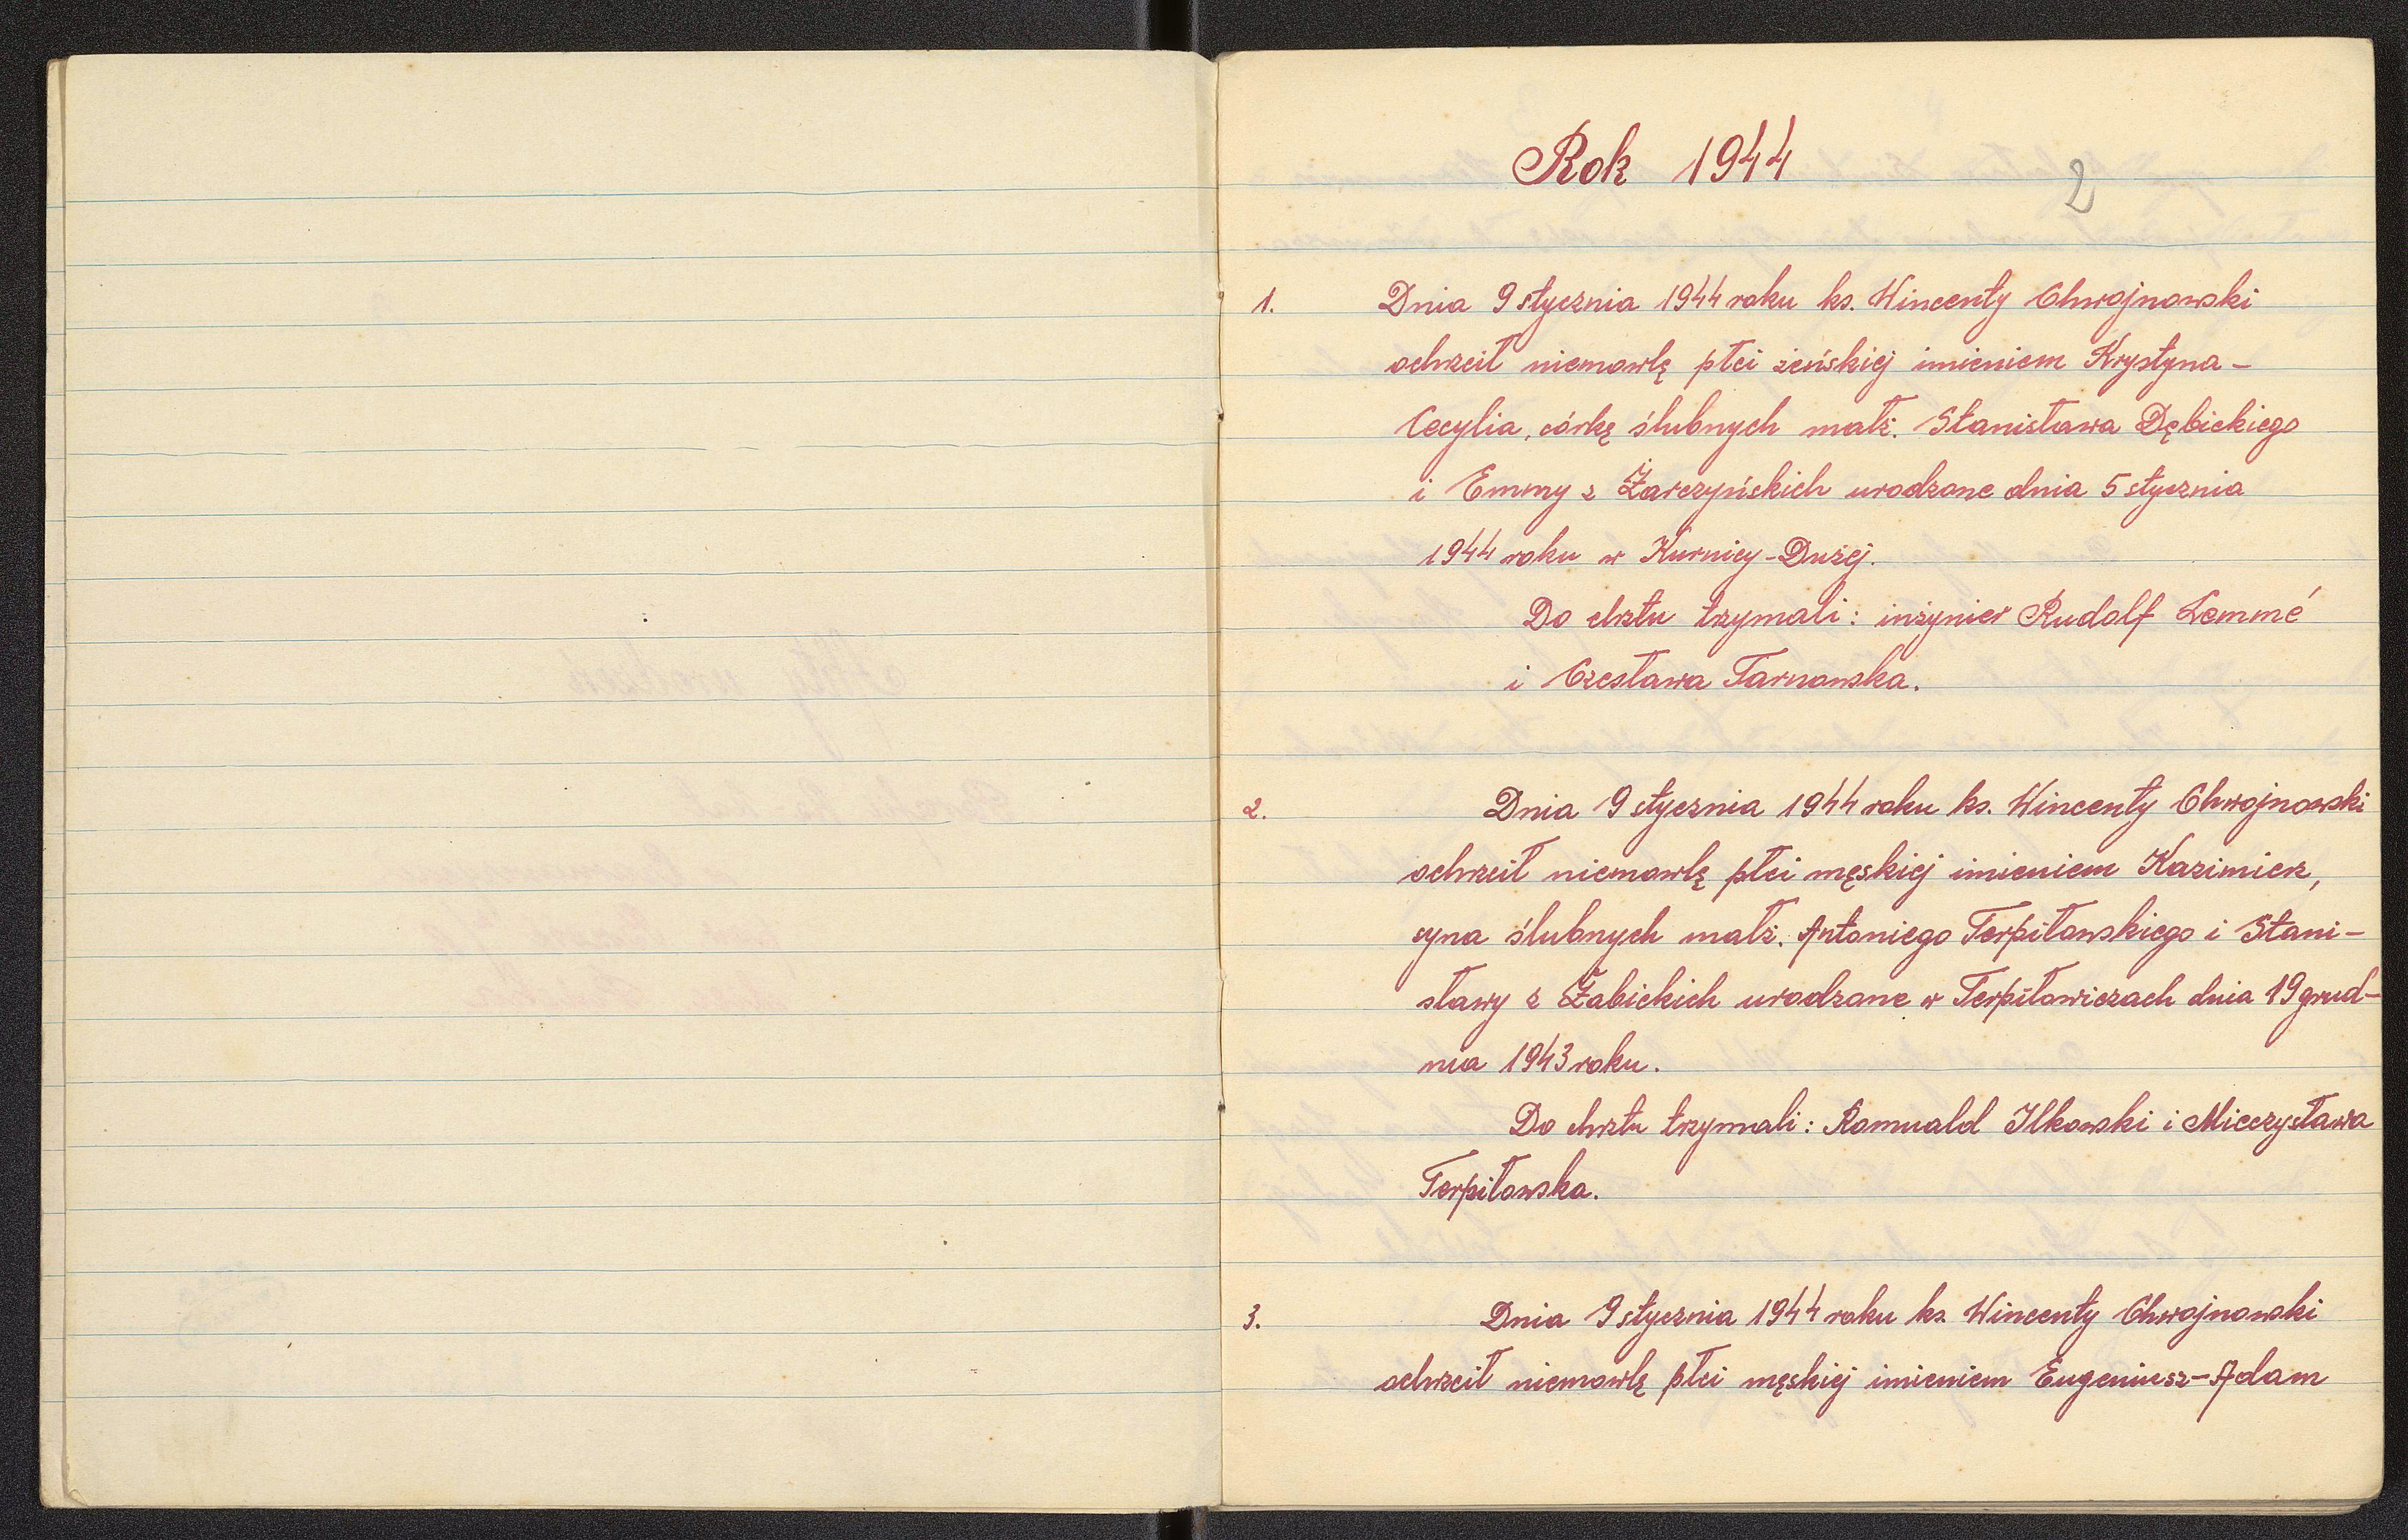 Rok 1944
2
1. Dnia 9 stycznia 1944 roku ks. Wincenty Chwojnowski
ochrzcił niemowlę płci żeńskiej imieniem Krystyna-
Cecylia, córkę ślubnych małż. Stanisława Dębickiego
i Emmy z Żarczyńskich urodzone dnia 5 stycznia
1944 roku w Kurnicy-Dużej.
Do chrztu trzymali: inżynier Rudolf Lemmé
i Czesława Tarnowska.
2. Dnia 9 stycznia 1944 roku ks. Wincenty Chwojnowski
ochrzcił niemowlę płci męskiej imieniem Kazimierz,
syna ślubnych małż. Antoniego Terpiłowskiego i Stani-
sławy z Żabickich urodzone w Terpiłowiczach dnia 19 grud-
nia 1943 roku.
Do chrztu trzymali: Romuald Ilkowski i Mieczysława
Terpiłowska.
3. Dnia 9 stycznia 1944 roku ks. Wincenty Chwojnowski
ochrzcił niemowlę płci męskiej imieniem Eugeniusz-Adam